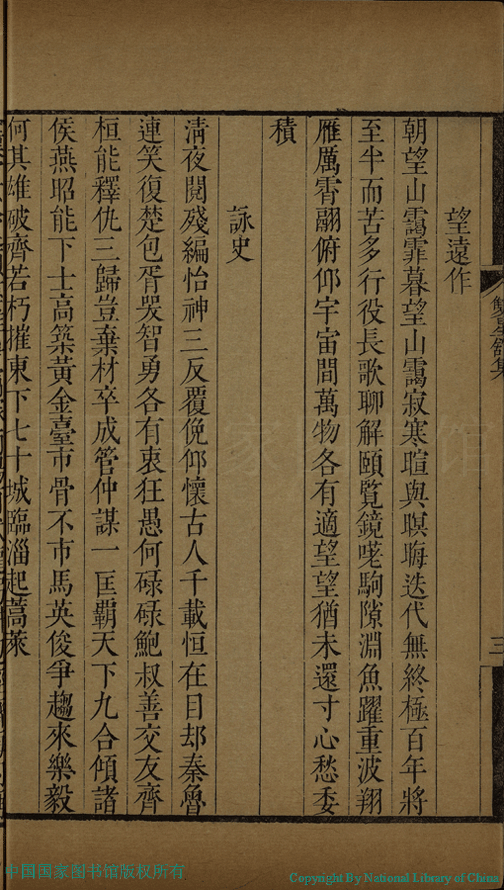 望遠作
朝望山靄霏暮望山靄寂寒暄與暝晦迭代無終極百年將
至半而苦多行役長歌聊解頤覽鏡咤駒隙淵魚躍重波翔
雁厲霄翮俯仰宇宙間萬物各有適望望猶未還寸心愁委
積
詠史
淸夜閱殘編怡神三反覆俛仰懷古人千載恒在目却秦魯
連笑復楚包胥哭智勇各有衷狂愚何碌碌鮑叔善交友齊
桓能釋仇三歸豈棄材卒成管仲謀一匡霸天下九合傾諸
侯燕昭能下士高築黃金臺市骨不市馬英俊爭趨來樂毅
何其雄破齊若朽摧東下七十城臨淄起蒿萊
雙星館集
三
中国国家图书馆版权所有
Copyright By National Library of China